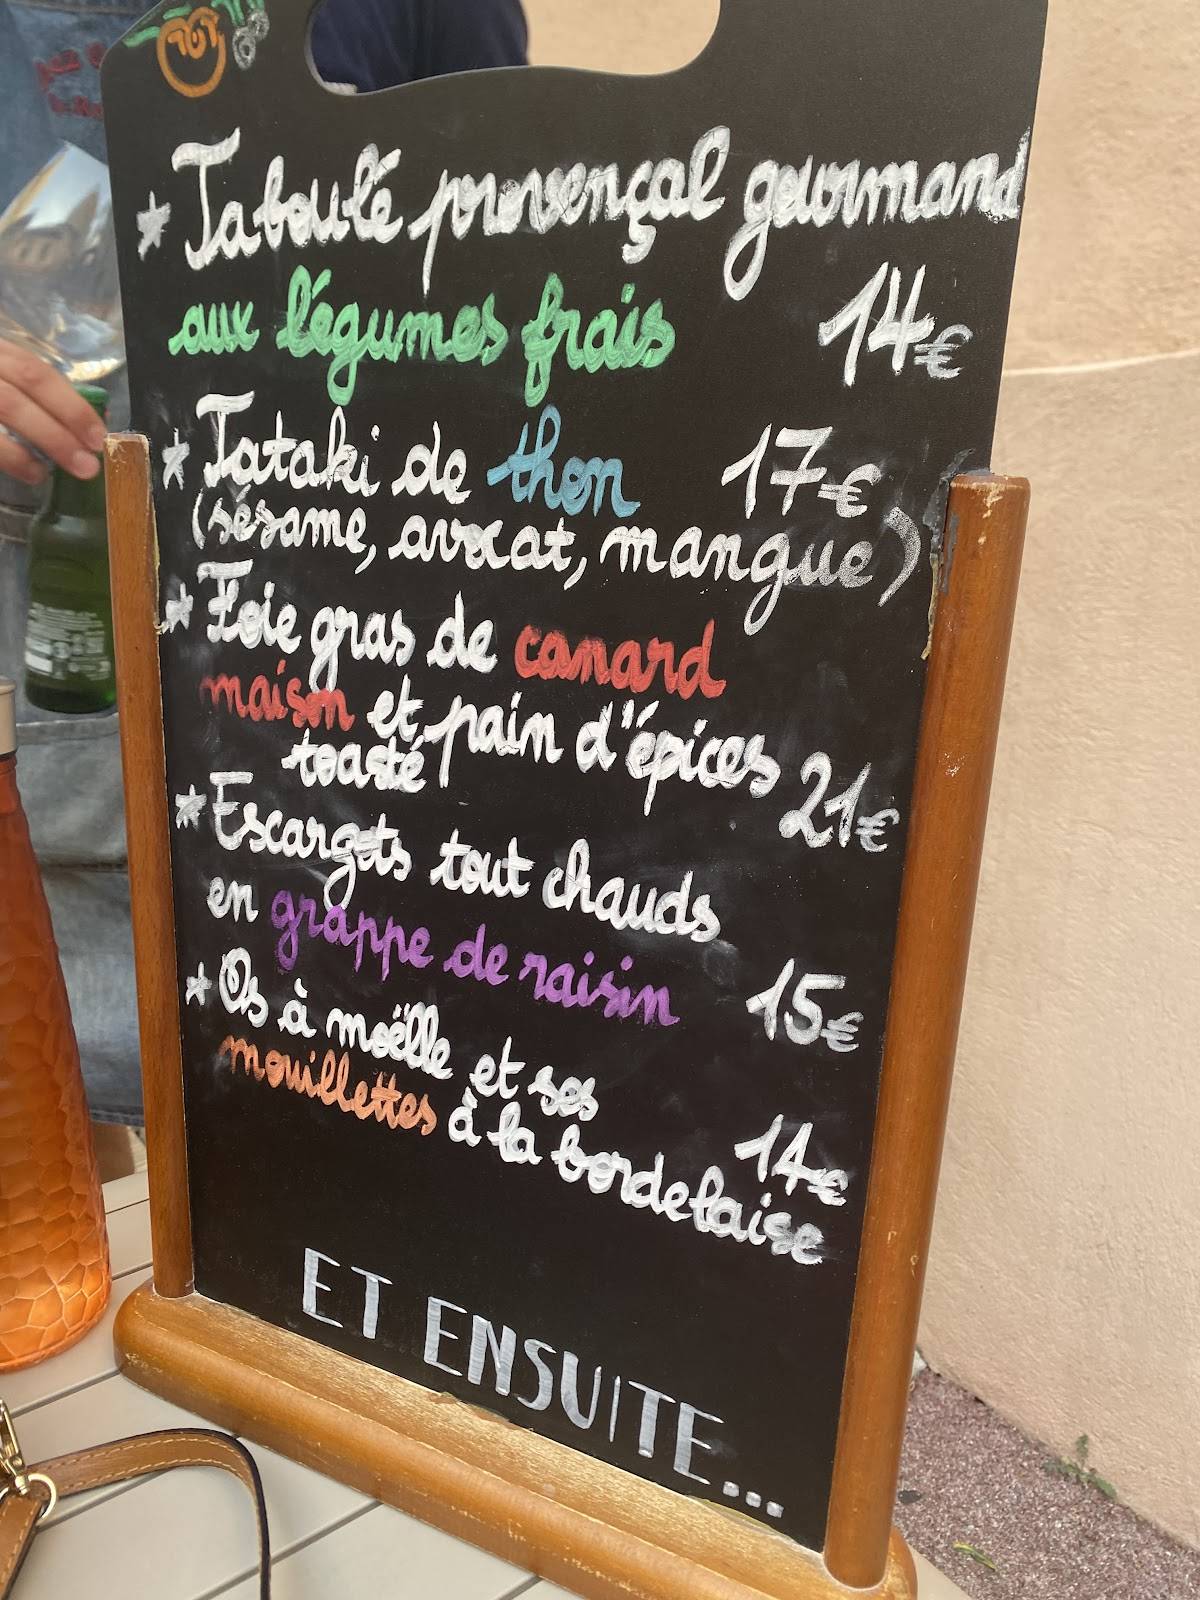 * Taboulé provençal gourmand
aux légumes frais 14€
* Tataki de thon 17€
(sésame, avocat, mangue)
* Foie gras de canard
maison et pain d'épices
toasté 21€
* Escargots tout chauds
en grappe de raisin 15€
* Os à moëlle et ses
mouillettes à la bordelaise 14€
ET ENSUITE...